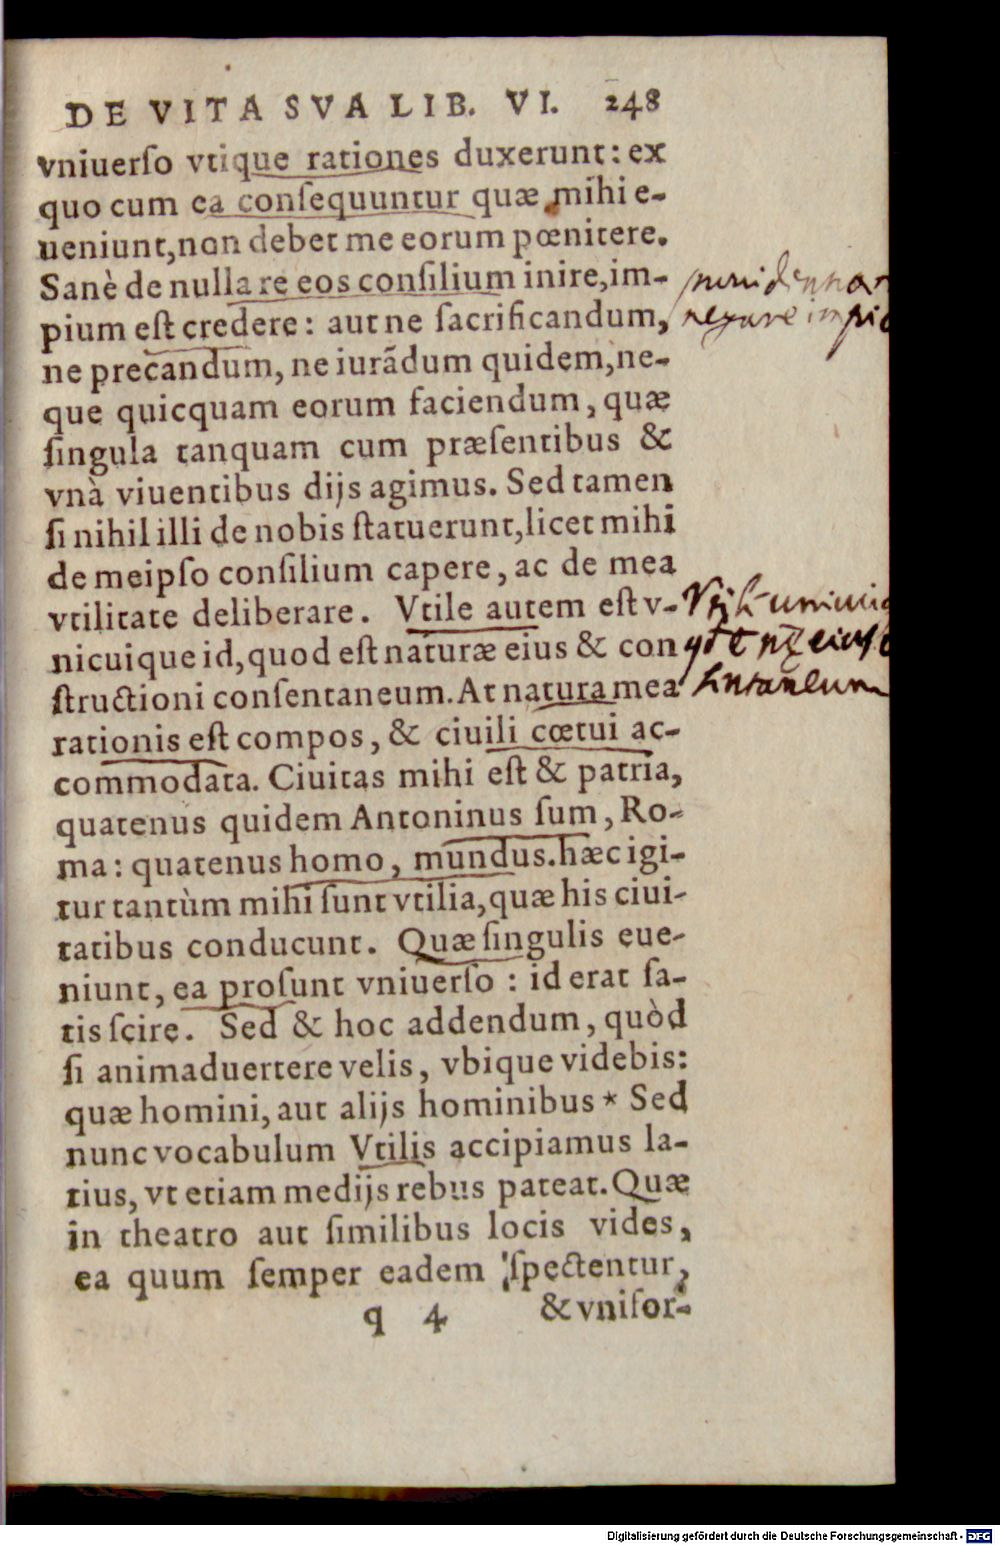 DE VITA SVA LIB. VI. 248
vniuerſo vtique rationes duxerunt: ex
quo cum ea conſequuntur quæ mihi e-
ueniunt, non debet me eorum pœnitere.
Sanè de nulla re eos conſilium inire, im-
pium eſt credere: aut ne ſacrificandum,
ne precandum, ne iurãdum quidem, ne-
que quicquam eorum faciendum, quæ
ſingula tanquam cum præſentibus &
vnà viuentibus dijs agimus. Sed tamen
ſi nihil illi de nobis ſtatuerunt, licet mihi
de meipſo conſilium capere, ac de mea
vtilitate deliberare. Vtile autem eſt v-
nicuique id, quod eſt naturæ eius & con
ſtructioni conſentaneum. At natura mea
rationis eſt compos, & ciuili cœtui ac-
commodata. Ciuitas mihi eſt & patria,
quatenus quidem Antoninus ſum, Ro-
ma: quatenus homo, mundus. hæc igi-
tur tantùm mihi ſunt vtilia, quæ his ciui-
tatibus conducunt. Quæ ſingulis eue-
niunt, ea proſunt vniuerſo: id erat ſa-
tis ſcire. Sed & hoc addendum, quòd
ſi animaduertere velis, vbique videbis:
quæ homini, aut alijs hominibus * Sed
nunc vocabulum Vtilis accipiamus la-
tius, vt etiam medijs rebus pateat. Quæ
in theatro aut ſimilibus locis vides,
ea quum ſemper eadem ſpectentur,
q 4 & vnifor-
negare
eius
Digitalisierung gefördert durch die Deutsche Forschungsgemeinschaft - DFG